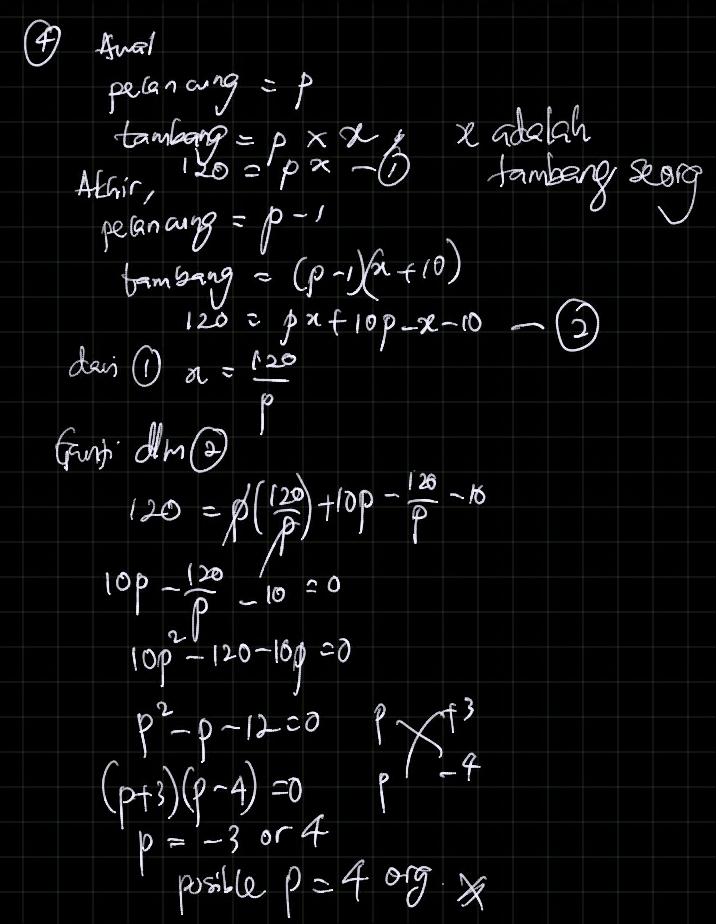 ④ Awal
pelancung = p
tambang = p × x, x adalah
tambang seorg
120 = px — ①
Akhir,
pelancung = p-1
tambang = (p-1)(x+10)
120 = px+10p-x-10 — ②
dari ① x = 120/p
Ganti dlm ②
120 = p(120/p)+10p - 120/p - 10
10p - 120/p - 10 = 0
10p² - 120 - 10p = 0
p² - p - 12 = 0 p +3
p -4
(p+3)(p-4) = 0
p = -3 or 4
posible p = 4 org.